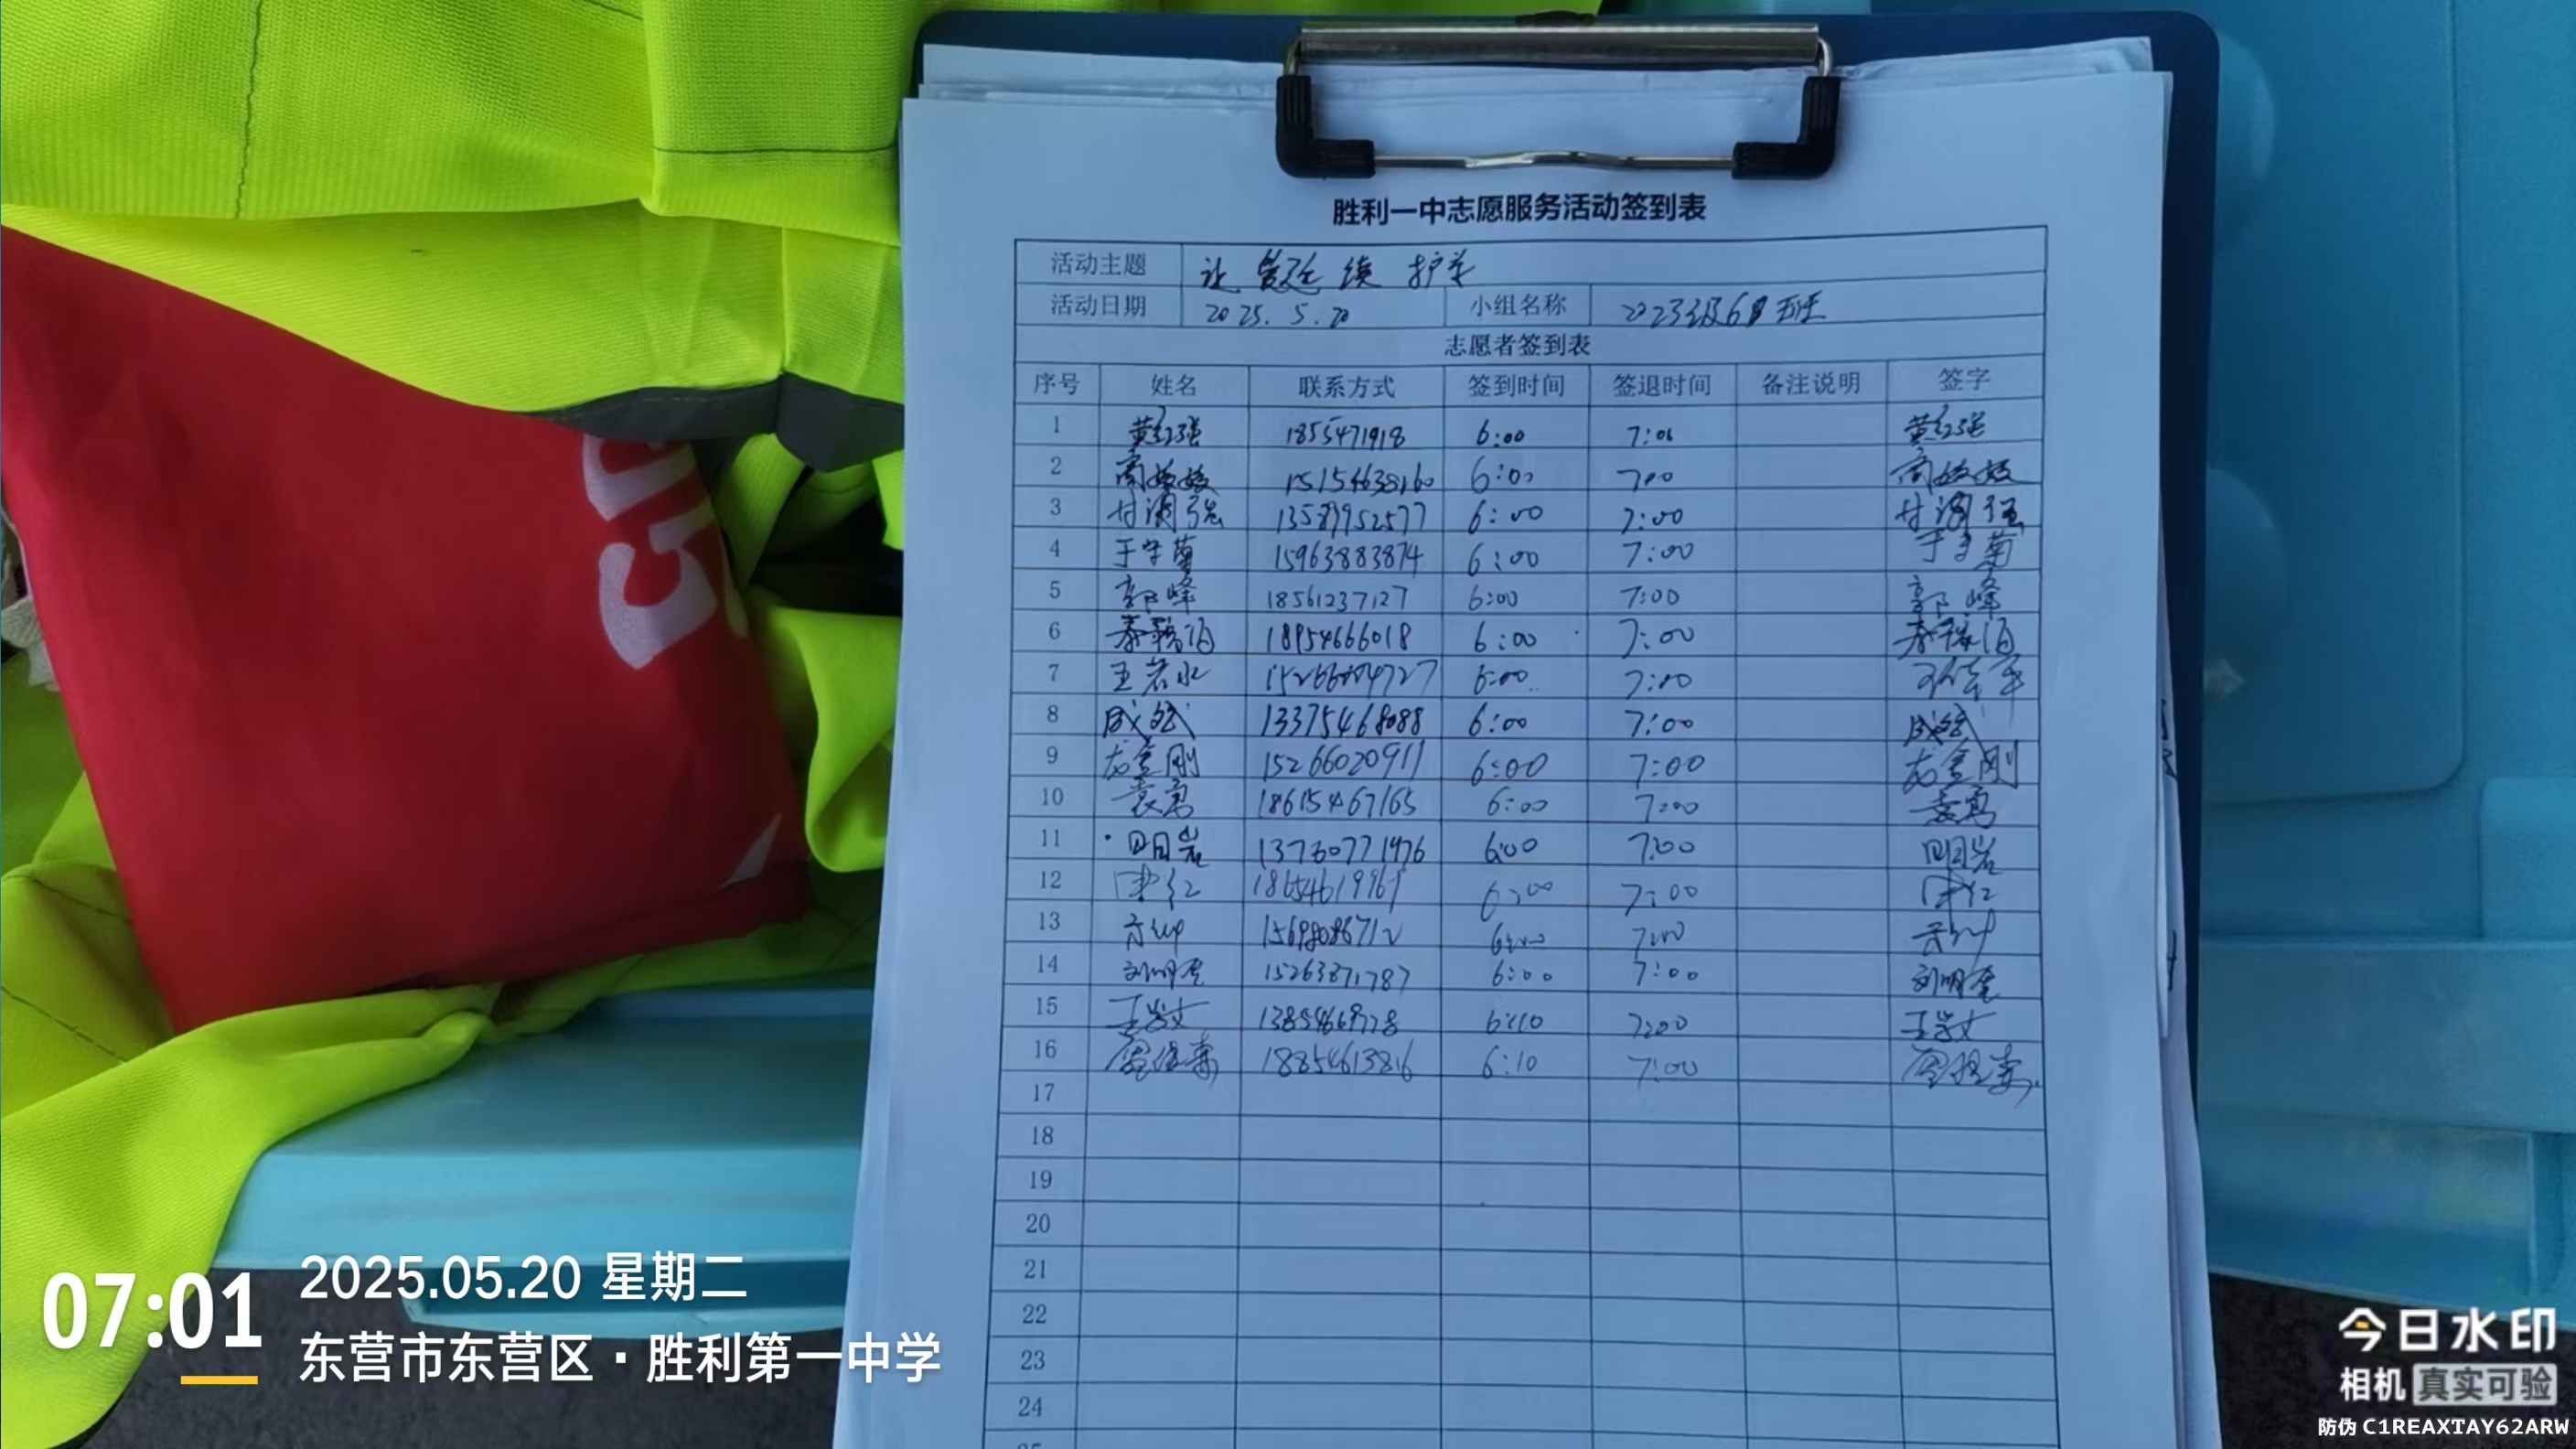 胜利一中志愿服务活动签到表
活动主题 让 续 护学
活动日期 2025.5.20 小组名称 2023级6班
志愿者签到表
序号 姓名 联系方式 签到时间 签退时间 备注说明 签字
1 黄红强 1855471918 6:00 7:00 黄红强
2 15154638160 6:00 7:00
3 甘润强 13589952577 6:00 7:00 甘润强
4 于学菊 15963883874 6:00 7:00 于学菊
5 郭峰 18561237127 6:00 7:00 郭峰
6 18954666018 6:00 7:00
7 王若水 6:00 7:00
8 成 13375468088 6:00 7:00 成
9 龙金刚 15266020911 6:00 7:00 龙金刚
10 袁高 18615467165 6:00 7:00 袁高
11 13760771976 6:00 7:00
12 6:00 7:00
13 6:00 7:00
14 刘明奎 15263871787 6:00 7:00 刘明奎
15 6:10 7:00
16 18854613816 6:10 7:00
17
18
19
20
21
22
23
24
07:01
2025.05.20 星期二
东营市东营区·胜利第一中学
今日水印
相机 真实可验
防伪 C1REAXTAY62ARW